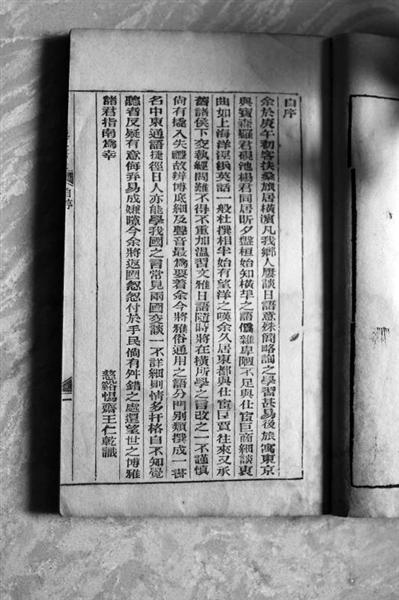 自序
余於庚午初客扶桑旅居橫濱凡我鄉人屢談日語意殊簡略詢之學習甚易後旅寓東京
與寶齋羅君硯池楊君同居昕夕盤桓始知橫之語雜卑陋不足與仕宦巨商細談衷
曲如上海洋涇浜英話一般杜撰相半始有望洋之嘆余久居東都與仕宦巨賈往來又承
舊諸侯下交執經問難不得不重加溫習文雅日語隨時將在橫所學之言改之一不謹慎
尚有攙入失禮故辨博底細及聲音最爲要着余今將雅俗通用之語分門別類撰成一書
名中東通語捷徑日人亦能學我國之言常見兩國交談一不詳細則情多扞格自不知覺
聽者反疑有意侮弄易成嫌隙今余將返國怱怱付於手民倘有舛錯之處還望世之博雅
諸君指南爲幸
慈谿惕齋王仁乾識
自序